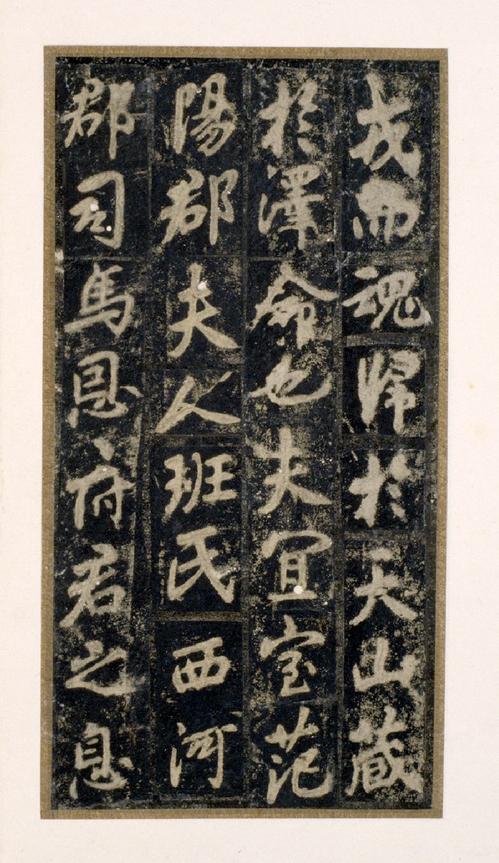 成而魂歸於天山藏
於澤命也夫冝室范
陽郡夫人班氏西河
郡司馬恩府君之息